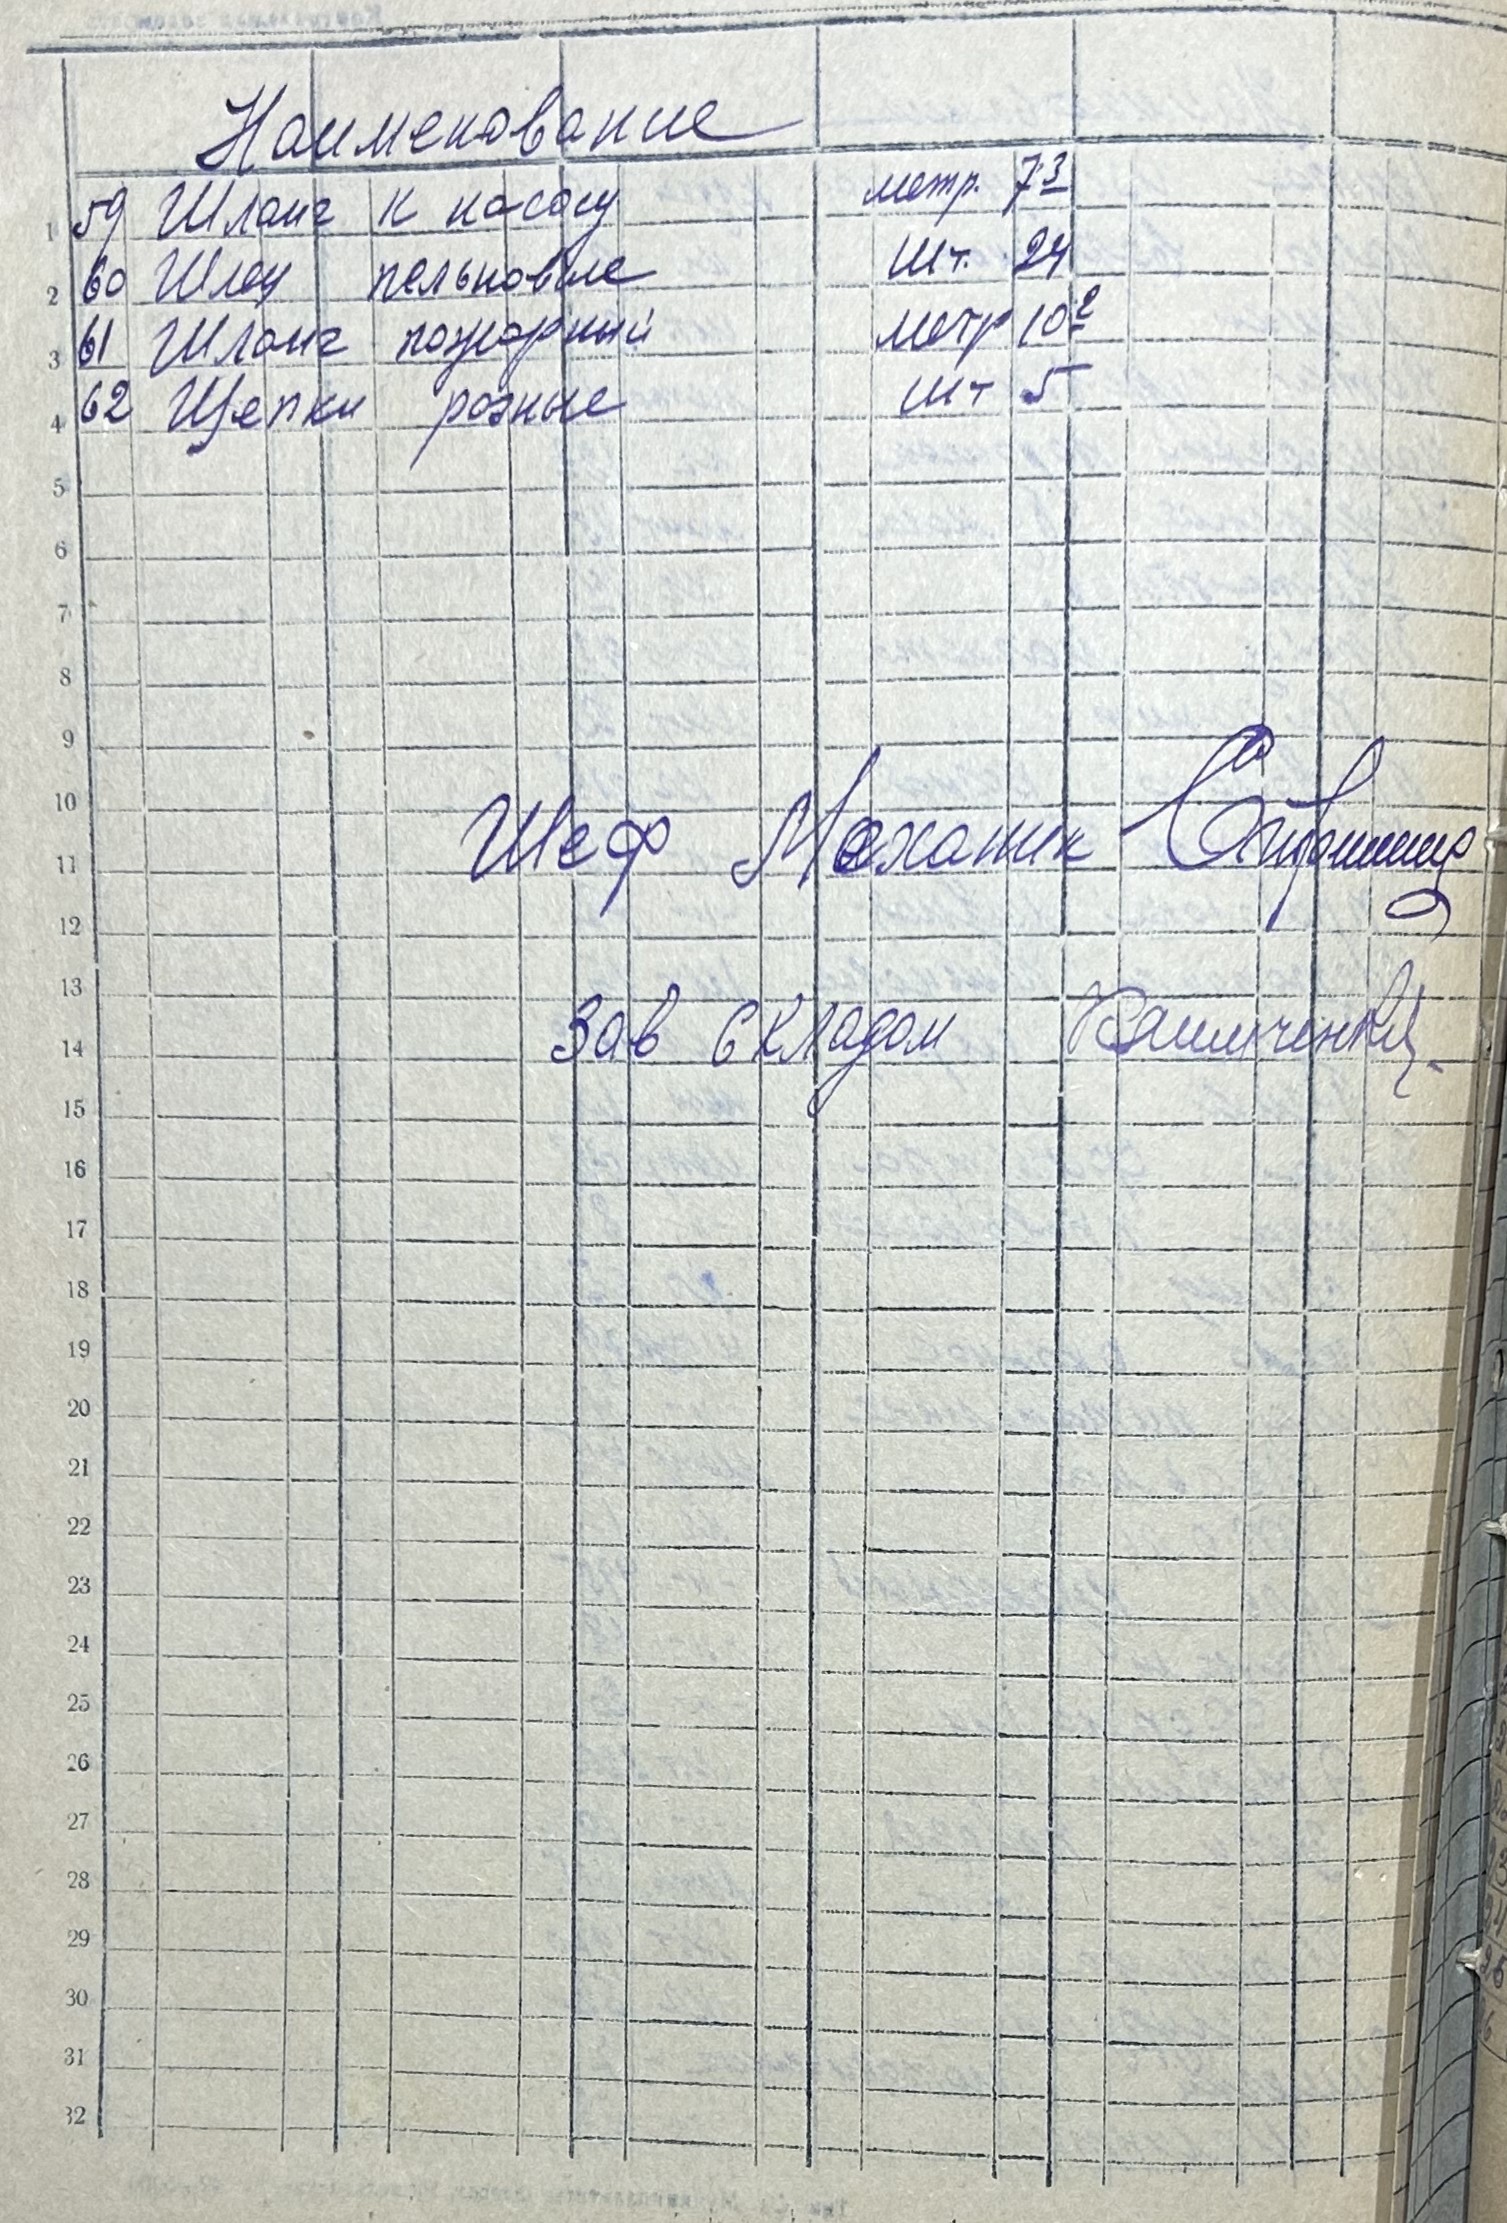 Наименование
59 Шланг к насосу метр. 7.3
60 Шлеи пельковые шт. 24
61 Шланг пожарный метр 10²
62 Щепки разные шт 5
1
2
3
4
5
6
7
8
9
10
Шеф Механик
11
12
13
Зав Складом
14
15
16
17
18
19
20
21
22
23
24
25
26
27
28
29
30
31
32